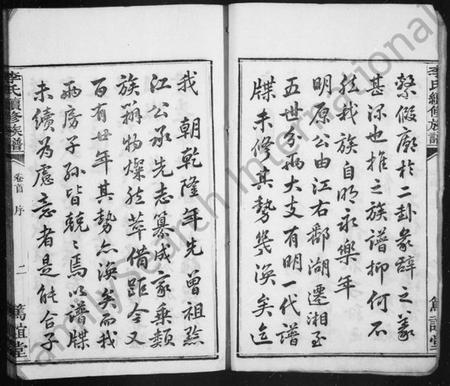 李氏續修族譜
繫假廟於二卦彖辭之義
甚深也推之族譜抑何不
然我族自明永樂年
明原公由江右鄱湖遷湘至
五世分為大支有明一代譜
牒未修其勢幾渙矣迄
篤誼堂
我 朝乾隆年先曾祖點
江公承先志纂成家乘類
族辨物燦然萃備距今又
百有廿年其勢亦渙矣而我
兩房子孫皆兢兢焉以譜牒
未續為慮意者是能合子
李氏續修族譜
卷首 序
二
篤誼堂
FamilySearch International